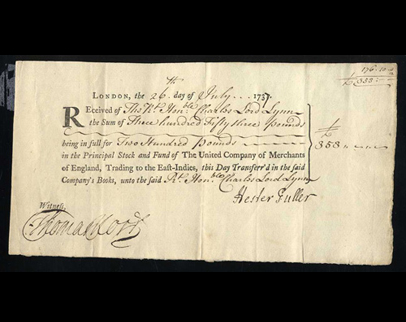 176.10
£ 353 . –
London, the 26th day of July 1737.
Received of The Rt. Honble Charles Lord Lynn
the Sum of Three hundred Fifty three Pounds
£
353 „ – „ –
being in full for Two Hundred Pounds
in the Principal Stock and Fund of The United Company of Merchants
of England, Trading to the East-Indies, this Day Transferr'd in the said
Company's Books, unto the said Rt. Honble Charles Lord Lynn
Hester Fuller
Witness,
Thomas